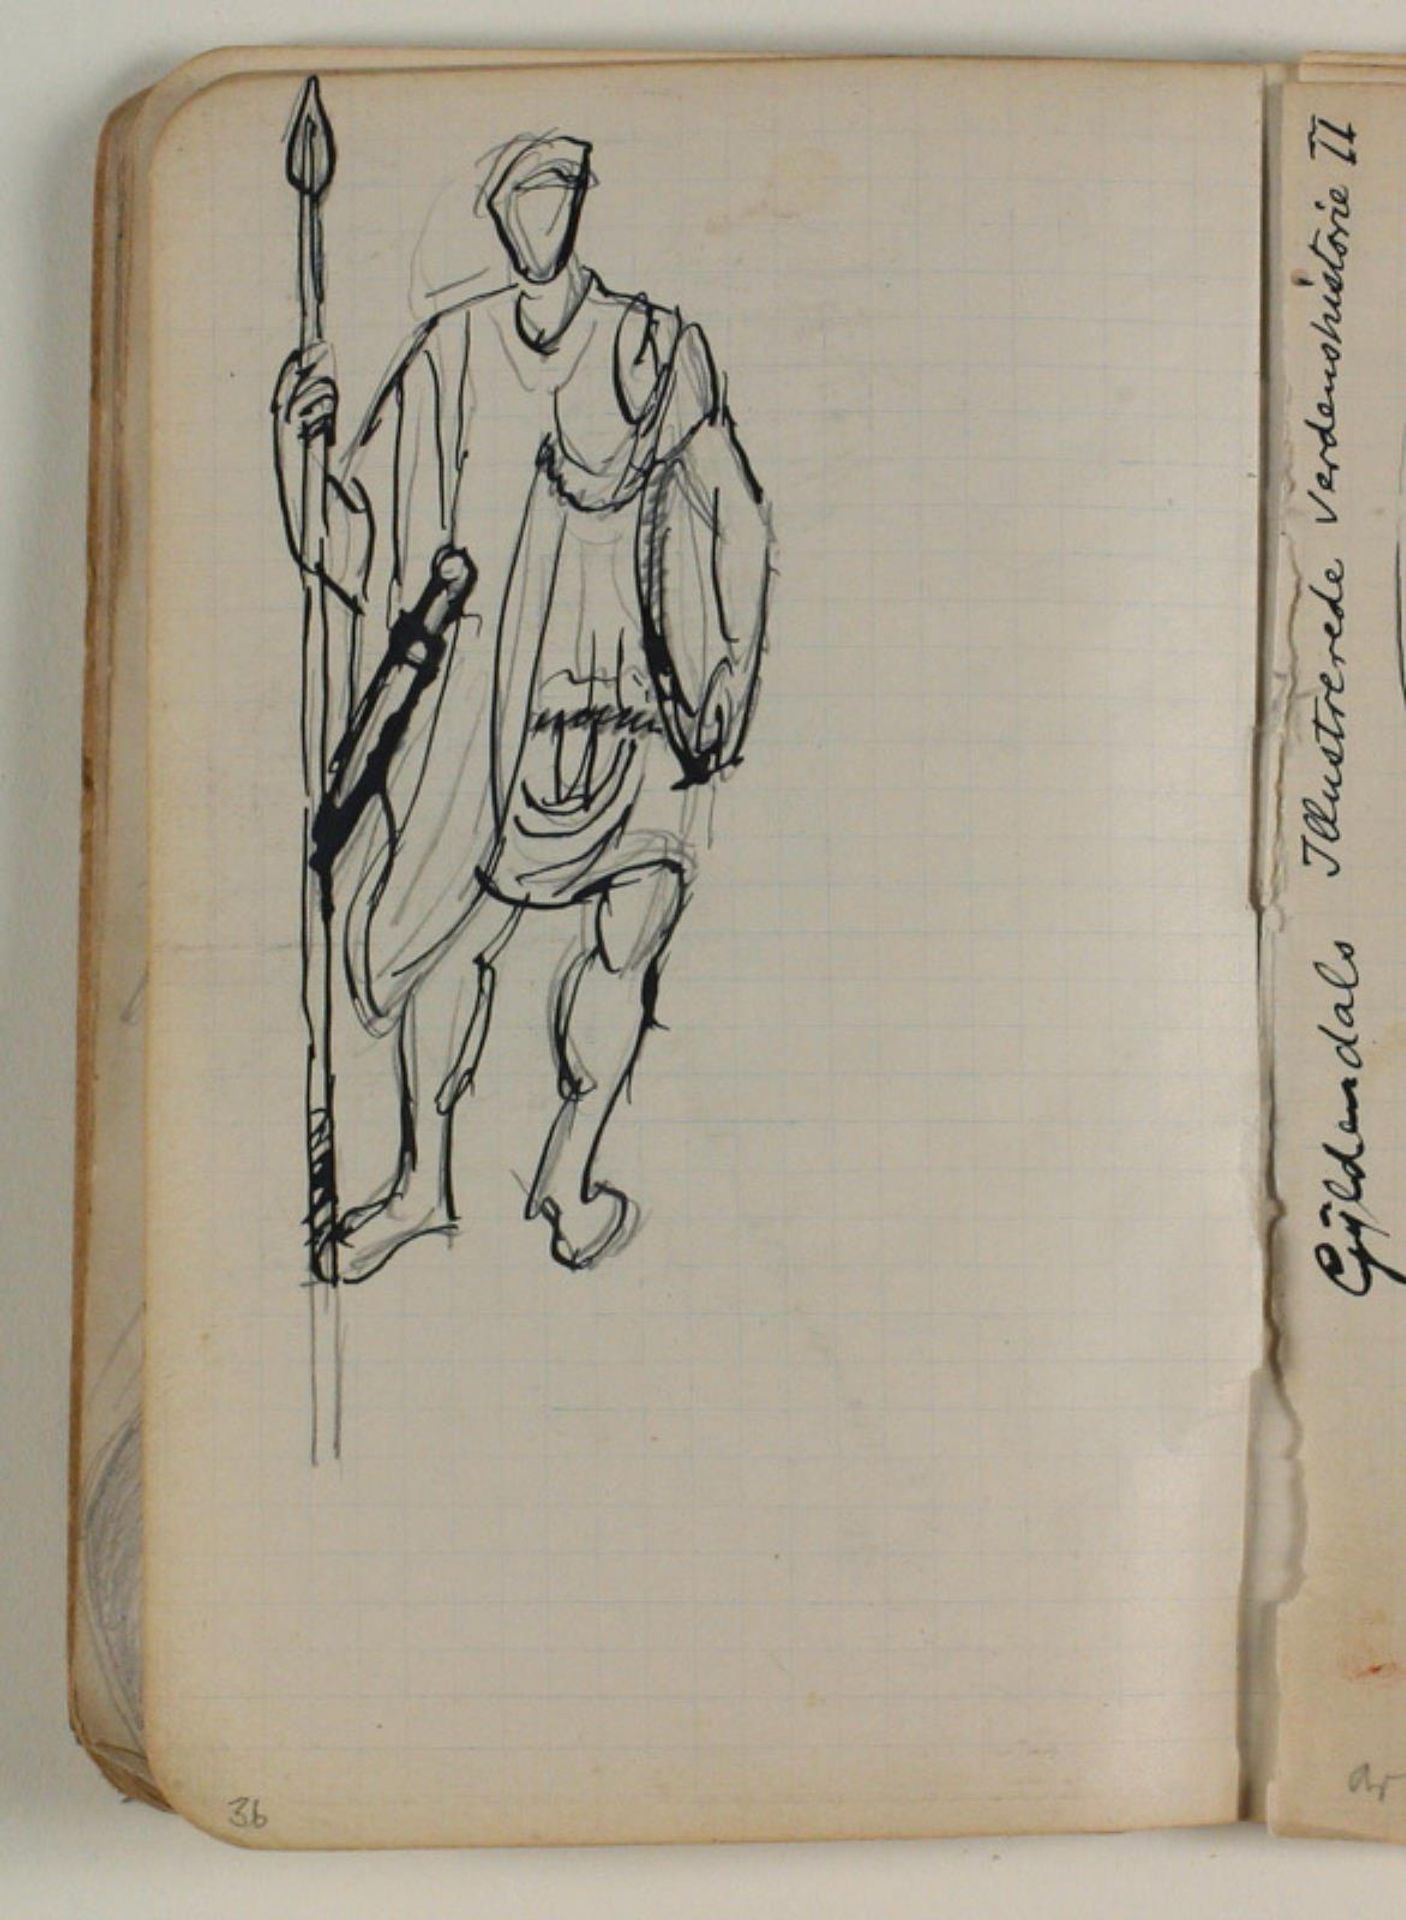 Gyldendals Illustrerede Verdenshistorie II
36